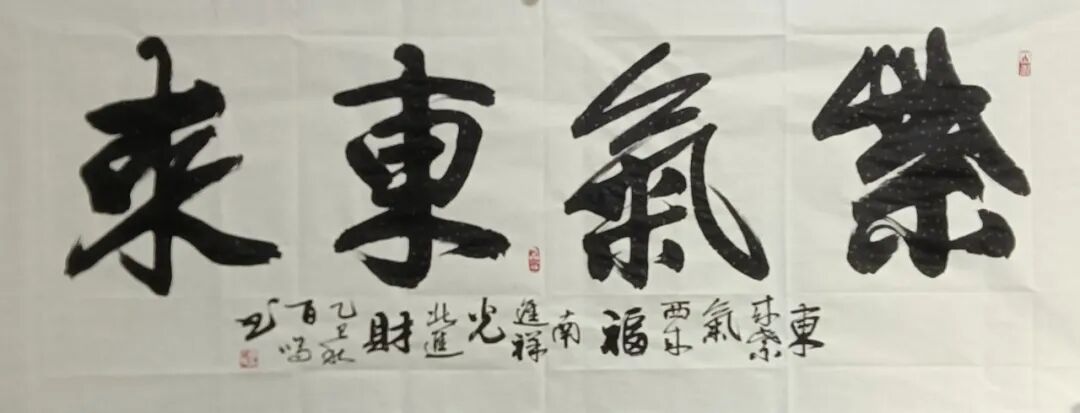 紫氣東來
東來紫氣西來福南進祥光北進財
乙巳秋
百
書